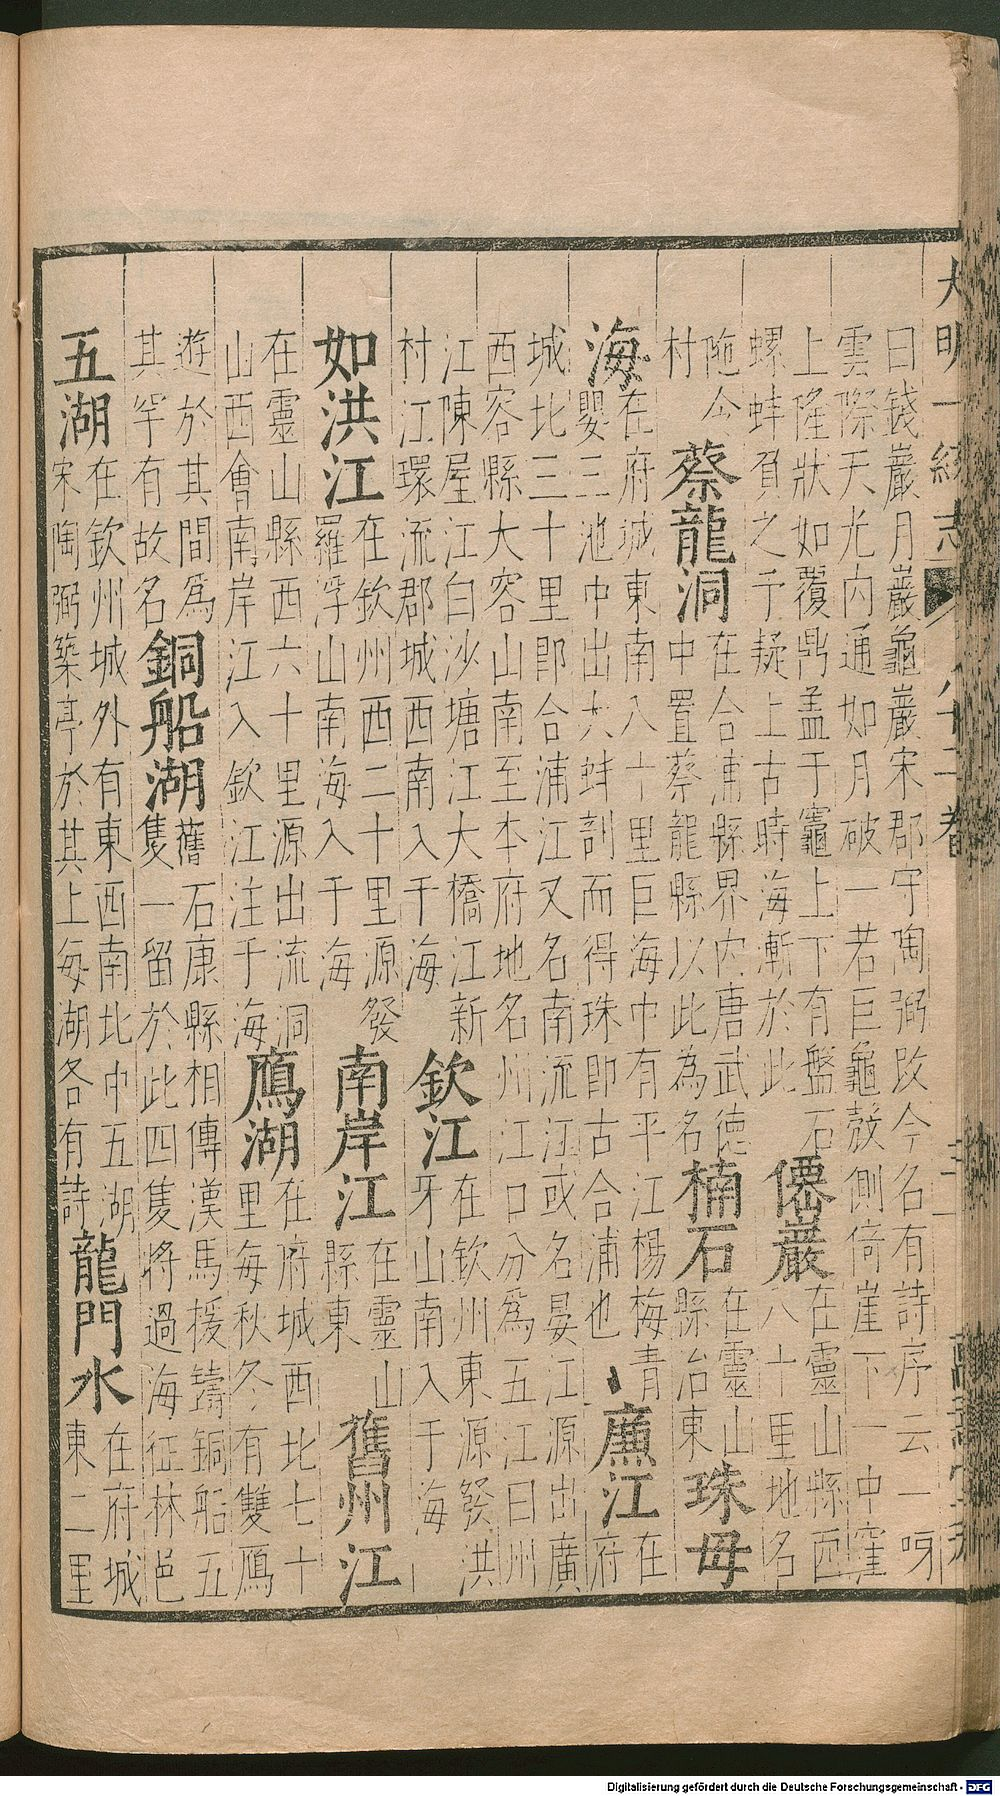 大明一統志 八十二卷
曰錢巖月巖龜巖宋郡守陶弼改今名有詩序云一呀
雲際天光内通如月破一若巨龜殼側倚崖下一中窪
上隆狀如覆鼎盖于竈上下有盤石
螺蚌負之予疑上古時海漸於此
僊巖
在靈山縣西
八十里地名
陁今
村
蔡龍洞
在合浦縣界内唐武德
中置蔡龍縣以此為名
楠石
在靈山
縣治東
珠母
海
在府城東南八十里巨海中有平江楊梅青
嬰三池中出大蚌剖而得珠即古合浦也
廉江
在
府
城北三十里即合浦江又名南流江或名晏江源出廣
西容縣大容山南至本府地名州江口分為五江曰州
江陳屋江白沙塘江大橋江新
村江環流郡城西南入于海
欽江
在欽州東源發洪
牙山南入于海
如洪江
在欽州西二十里源發
羅浮山南海入于海
南岸江
在靈山
縣東
舊州江
在靈山縣西六十里源出流洞
山西會南岸江入欽江注于海
鴈湖
在府城西北七十
里每秋冬有雙鴈
遊於其間為
其罕有故名
銅船湖
舊石康縣相傳漢馬援鑄銅船五
隻一留於此四隻將過海征林邑
五湖
在欽州城外有東西南北中五湖
宋陶弼築亭於其上每湖各有詩
龍門水
在府城
東二里
Digitalisierung gefördert durch die Deutsche Forschungsgemeinschaft - DFG